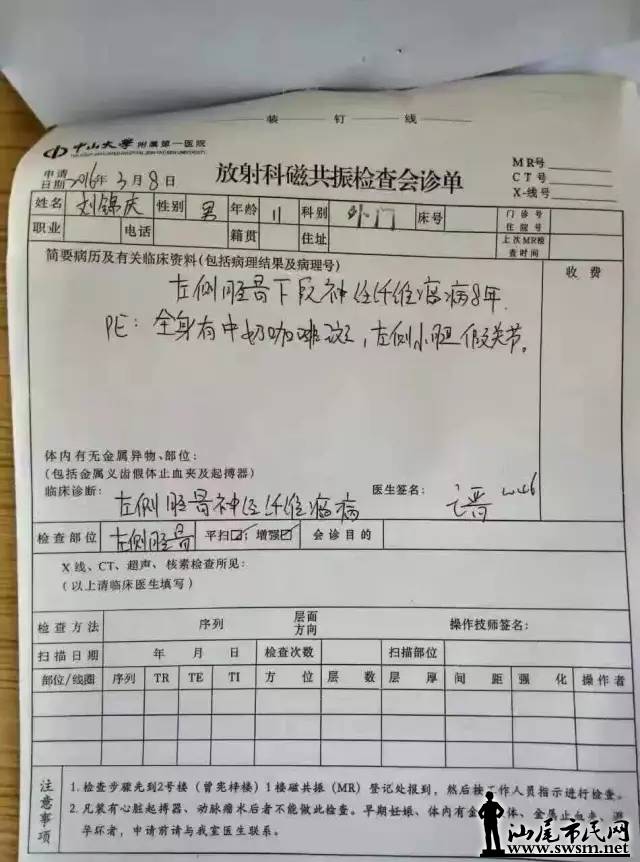 装 订 线
中山大学 附属第一医院
放射科磁共振检查会诊单
MR号
CT号
X-线号
申请日期 2016年3月8日
姓名 刘锦庆 性别 男 年龄 11 科别 外门 床号 门诊号 住院号
职业 电话 籍贯 住址 上次MR检查时间
简要病历及有关临床资料(包括病理结果及病理号) 收费
左侧胫骨下段神经纤维瘤病8年.
PE: 全身有牛奶咖啡斑,左侧小腿假关节。
体内有无金属异物、部位:
(包括金属义齿假体止血夹及起搏器)
临床诊断: 左侧胫骨神经纤维瘤病 医生签名:
检查部位 左侧胫骨 平扫☑; 增强☑ 会诊目的
X线、CT、超声、核素检查所见:
(以上请临床医生填写)
检查方法 序列 层面方向 操作技师签名:
扫描日期 年 月 日 检查次数 扫描部位
部位/线圈 序列 TR TE TI 方位 层数 层厚 间距 强化 操作者
注意事项
1.检查步骤先到2号楼(曾宪梓楼)1楼磁共振(MR)登记处报到,然后按工作人员指示进行检查。
2.凡装有心脏起搏器、动脉瘤术后者不能做此检查。早期妊娠、体内有金 体、金属止血夹、避
孕环者,申请前请与我室医生联系。
汕尾市民网
www.swsm.net